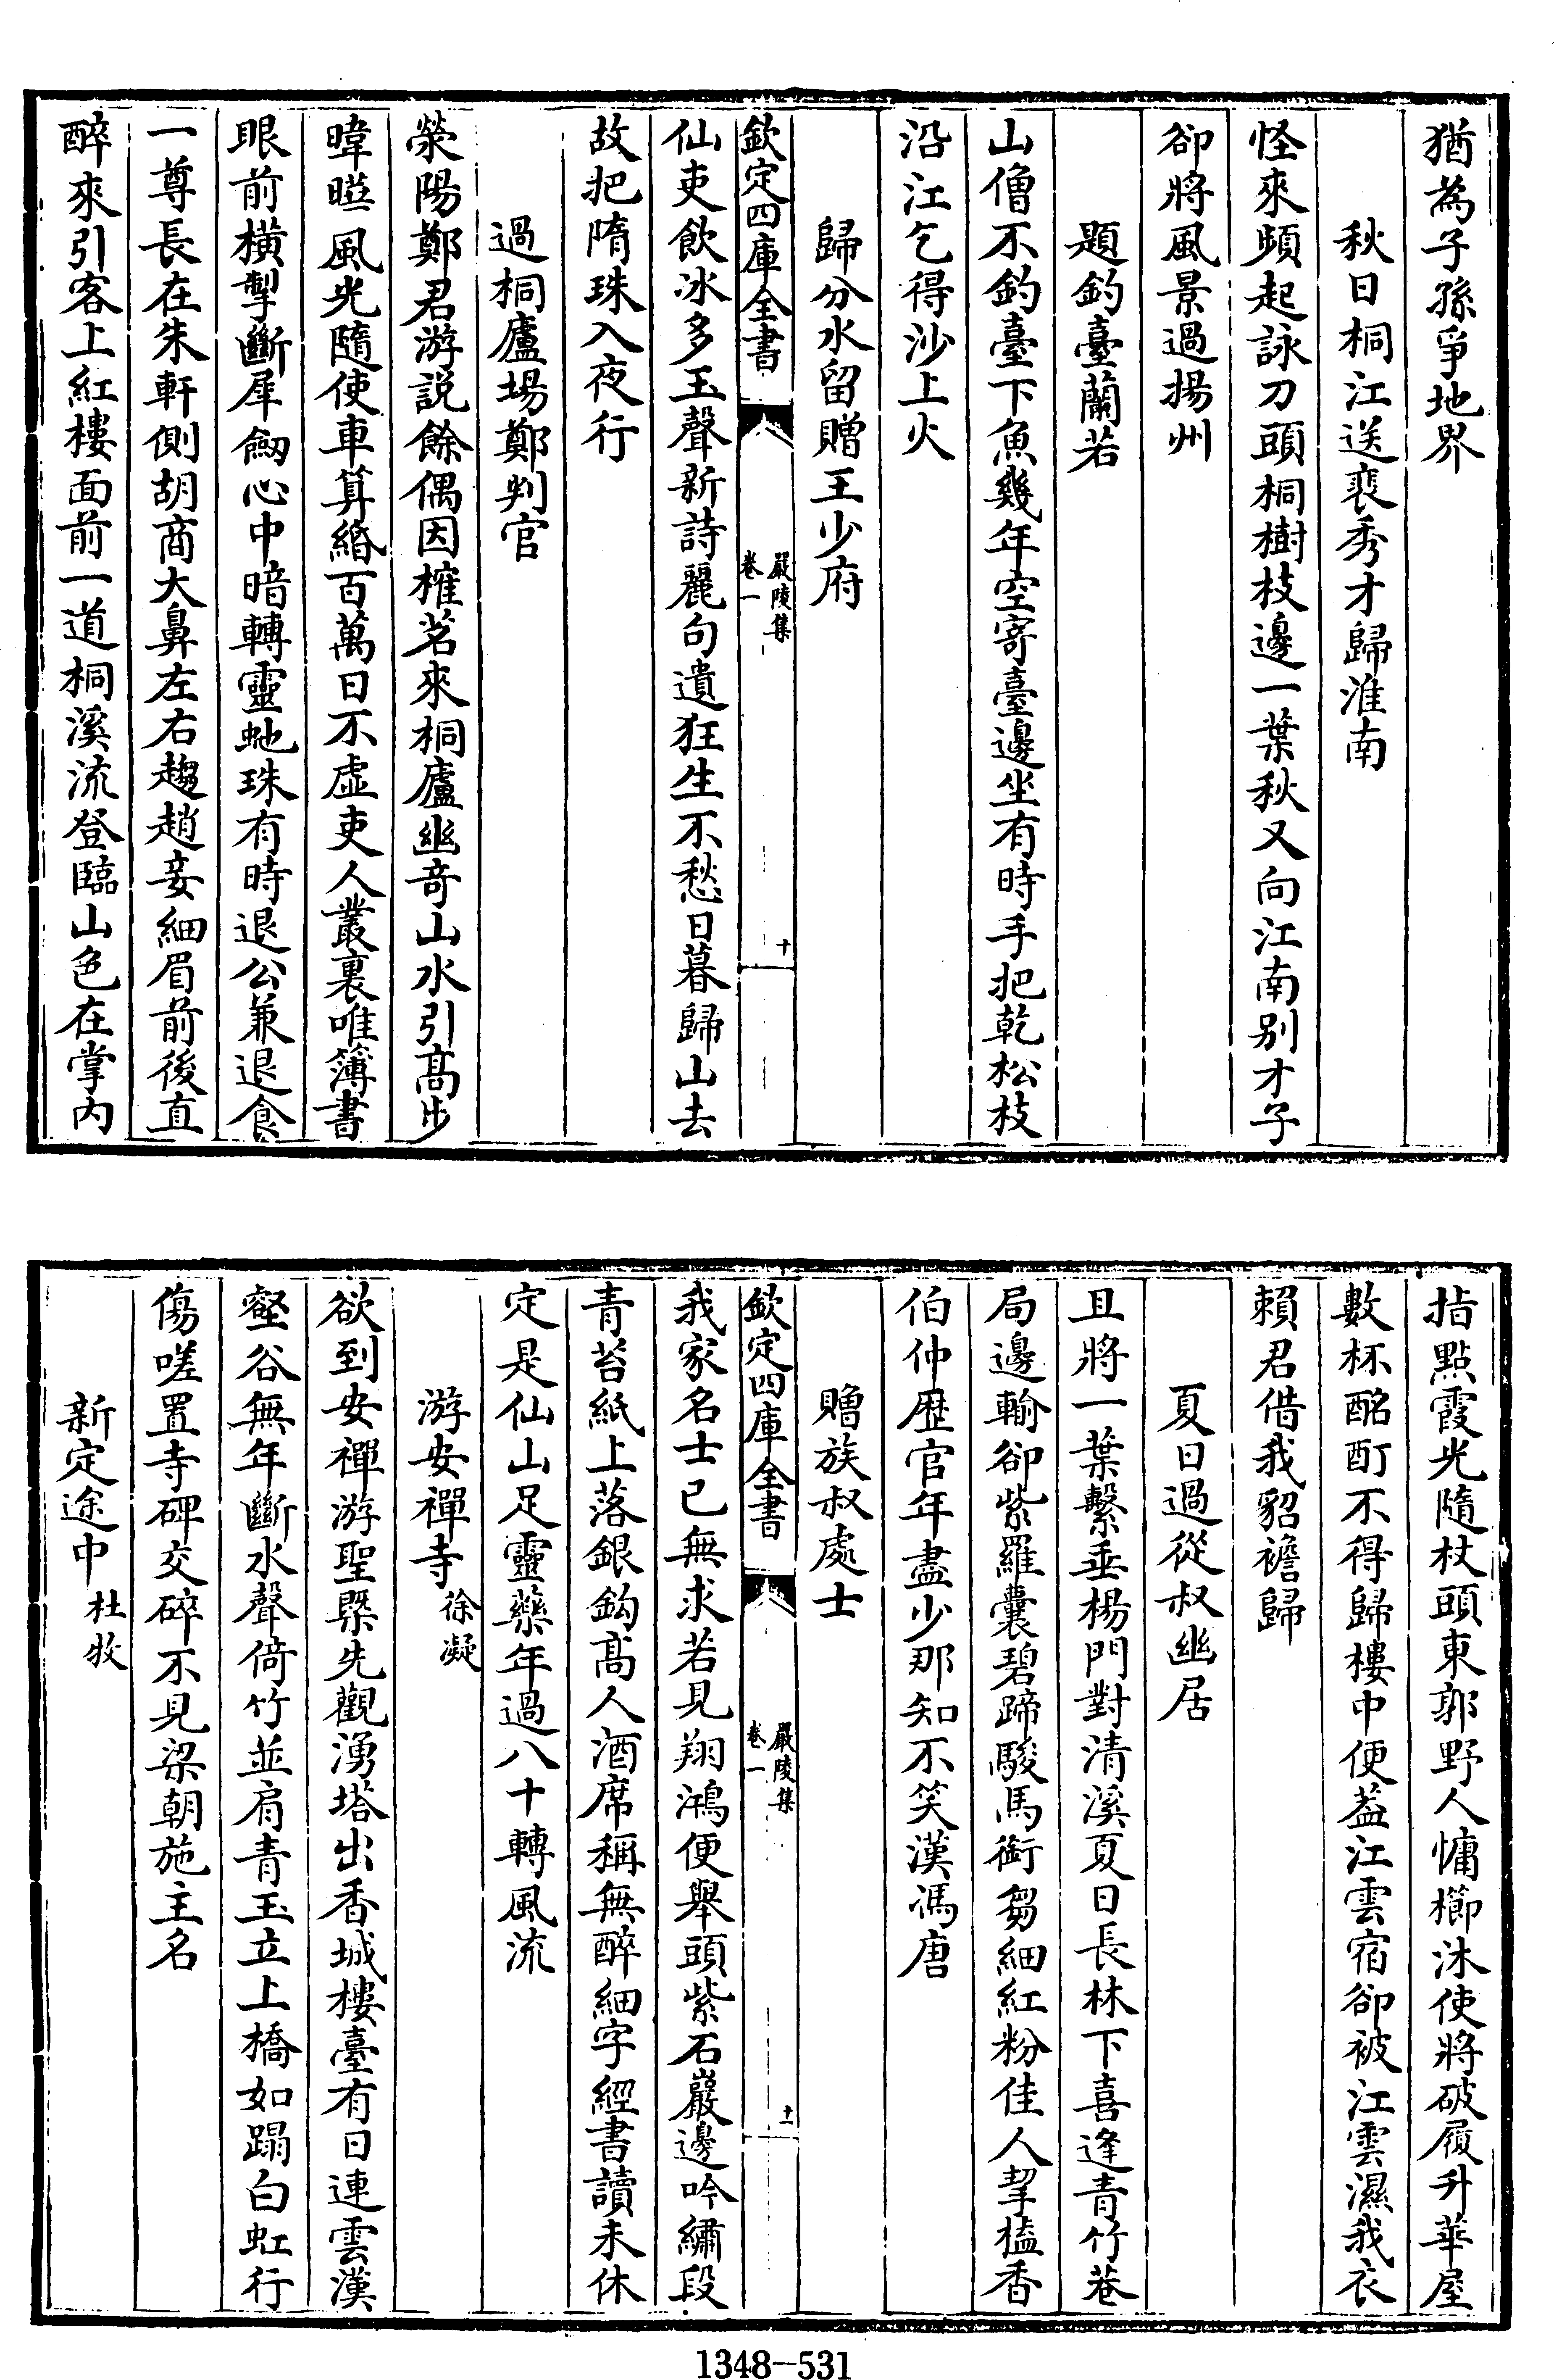 猶為子孫爭地界
秋日桐江送裵秀才歸淮南
怪來頻起詠刀頭桐樹枝邊一葉秋又向江南別才子
卻將風景過揚州
題釣臺蘭若
山僧不釣臺下魚幾年空寄臺邊坐有時手把乾松枝
沿江乞得沙上火
歸分水留贈王少府
欽定四庫全書
嚴陵集
卷一
十
仙吏飲冰多玉聲新詩麗句遺狂生不愁日暮歸山去
故把隋珠入夜行
過桐廬場鄭判官
滎陽鄭君游説餘偶因榷茗來桐廬幽奇山水引髙步
暐曄風光隨使車算緡百萬日不虛吏人叢裏唯簿書
眼前橫掣斷犀劔心中暗轉靈虵珠有時退公兼退食
一尊長在朱軒側胡商大鼻左右趨趙妾細眉前後直
醉來引客上紅樓面前一道桐溪流登臨山色在掌內
指點霞光隨杖頭東郭野人慵櫛沐使將破履升華屋
數杯酩酊不得歸樓中便葢江雲宿卻被江雲濕我衣
賴君借我貂襜歸
夏日過從叔幽居
且將一葉繫垂楊門對清溪夏日長林下喜逢青竹巷
局邊輸卻紫羅囊碧蹄駿馬銜芻細紅粉佳人挈榼香
伯仲歷官年盡少那知不笑漢馮唐
贈族叔處士
欽定四庫全書
嚴陵集
卷一
十一
我家名士已無求若見翔鴻便舉頭紫石巖邊吟繡段
青苔紙上落銀鈎髙人酒席稱無醉細字經書讀未休
定是仙山足靈藥年過八十轉風流
游安禪寺徐凝
欲到安禪游聖槩先觀湧塔出香城樓臺有日連雲漢
壑谷無年斷水聲倚竹並肩青玉立上橋如蹋白虹行
傷嗟置寺碑交碎不見梁朝施主名
新定途中杜牧
1348-531